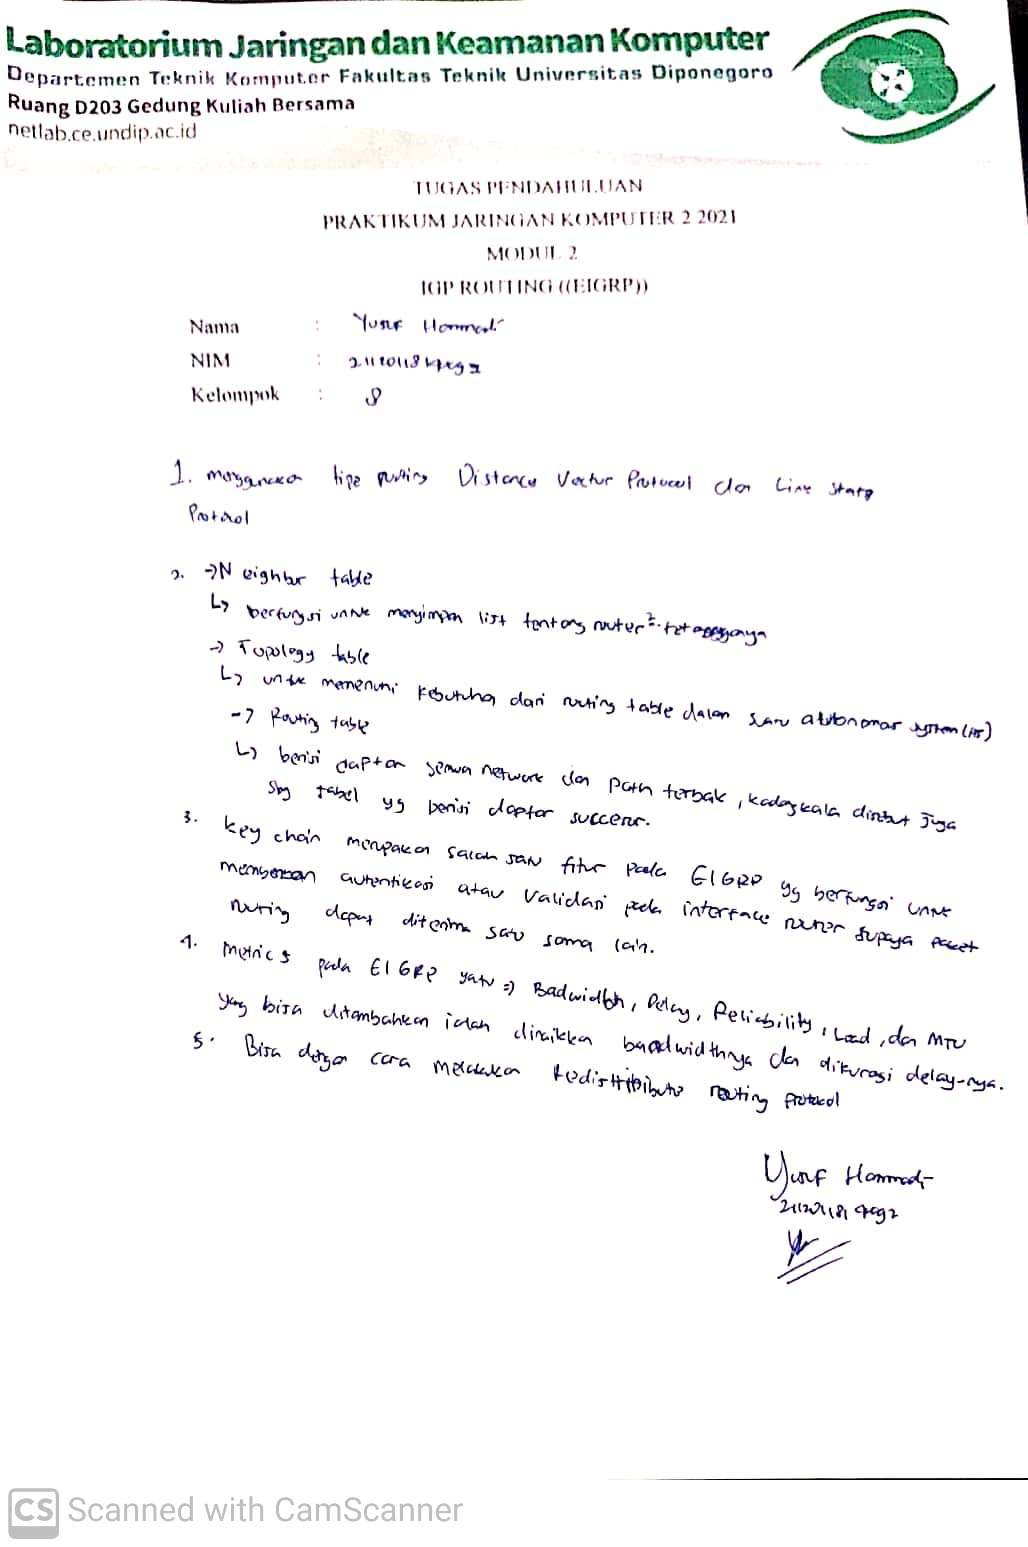 Laboratorium Jaringan dan Keamanan Komputer
Departemen Teknik Komputer Fakultas Teknik Universitas Diponegoro
Ruang D203 Gedung Kuliah Bersama
netlab.ce.undip.ac.id
TUGAS PENDAHULUAN
PRAKTIKUM JARINGAN KOMPUTER 2 2021
MODUL 2
IGP ROUTING ((EIGRP))
Nama : Yusuf Hammadi
NIM :
Kelompok : 8
1. menggunakan tipe routing Distance Vector Protocol dan Link State
Protocol
2. → Neighbor table
↳ berfungsi untuk menyimpan list tentang router² tetangganya
→ Topology table
↳ untuk memenuhi kebutuhan dari routing table dalam suatu autonomous system (AS)
→ Routing table
↳ berisi daftar semua network dan path terbaik, kadangkala disebut juga
sbg tabel yg berisi daftar successor.
3. key chain merupakan salah satu fitur pada EIGRP yg berfungsi untuk
memberikan autentikasi atau validasi pada interface router supaya paket
routing dapat diterima satu sama lain.
4. Metrics pada EIGRP yaitu => Badwidth, Delay, Reliability, Load, dan MTU
yang bisa ditambahkan ialah dinaikkan bandwidthnya dan dikurangi delay-nya.
5. Bisa dengan cara melakukan redistribute routing protocol
Yusuf Hammadi
CS Scanned with CamScanner